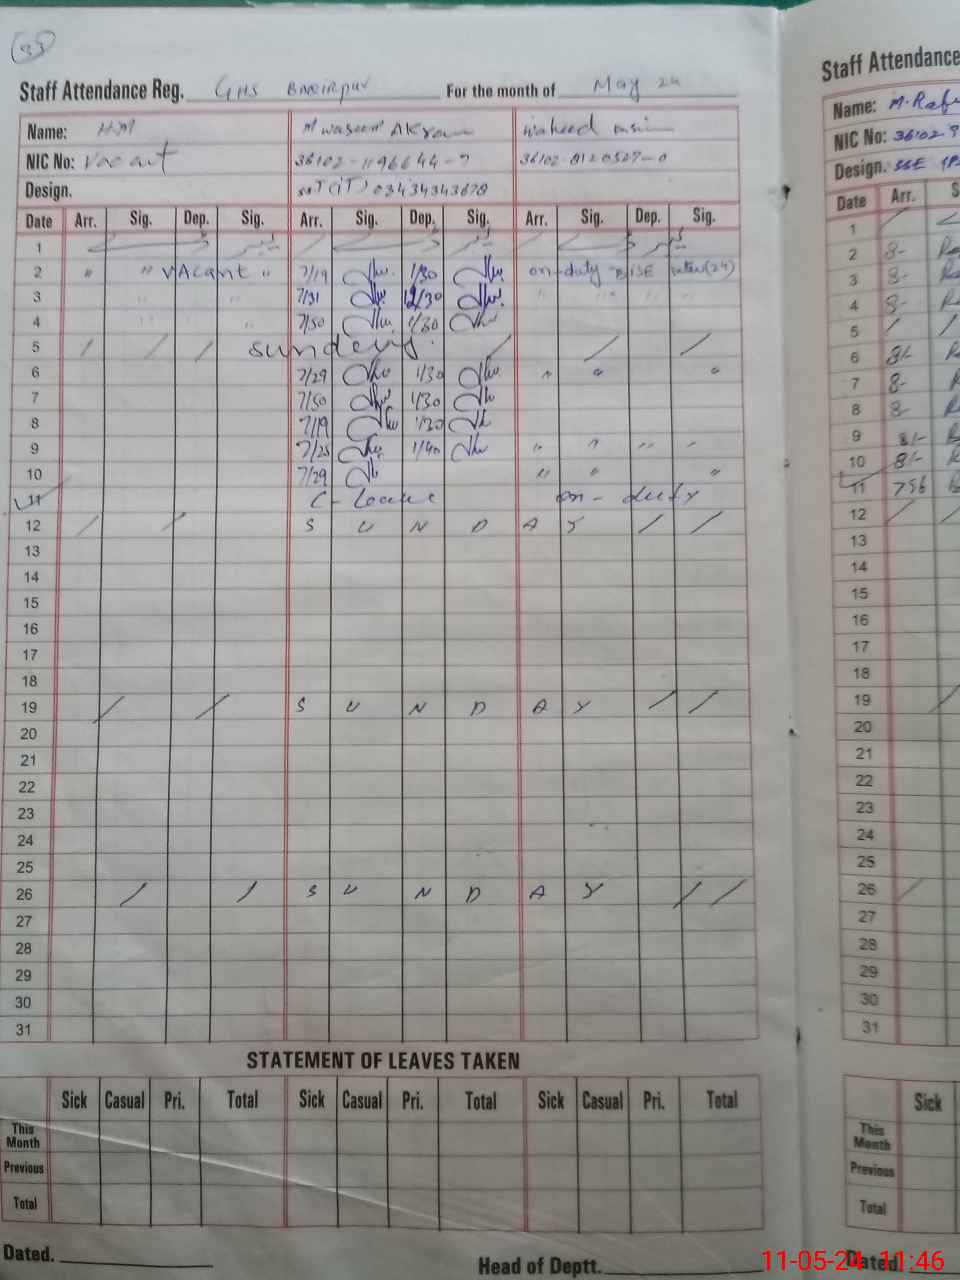 33
Staff Attendance Reg. GHS For the month of May 24
Name: HM M Waseem Akram Waheed
NIC No: Vacant 36102-1196644-7 36102-8120527-0
Design. SST (IT) 03434343678
Date Arr. Sig. Dep. Sig. Arr. Sig. Dep. Sig. Arr. Sig. Dep. Sig.
1
2 " " VACant " 7/19 1/30 on-duty BISE (24)
3 " " 7/31 12/30 " " " "
4 " " " 7/50 1/30
5 / / / Sunday. / / /
6 7/29 1/30 " " "
7 7/50 1/30
8 7/19 1/30
9 7/25 1/40 " " " "
10 7/29 " " "
11 C-Leave on-duty
12 / / S U N D A Y / /
13
14
15
16
17
18
19 / / S U N D A Y / /
20
21
22
23
24
25
26 / / S U N D A Y / /
27
28
29
30
31
STATEMENT OF LEAVES TAKEN
Sick Casual Pri. Total Sick Casual Pri. Total Sick Casual Pri. Total
This Month
Previous
Total
Dated. Head of Deptt.
Staff Attendance
Name:
NIC No: 36102
Design. SSE
Date Arr. S
1 /
2 8-
3 8-
4 8-
5 / /
6 8/-
7 8-
8 8-
9 8/-
10 8/-
11 756
12 / /
13
14
15
16
17
18
19 /
20
21
22
23
24
25
26 /
27
28
29
30
31
Sick
This Month
Previous
Total
Dated.
11-05-24 11:46